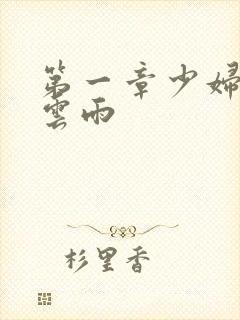 第一章少婦
雲雨
杉里香